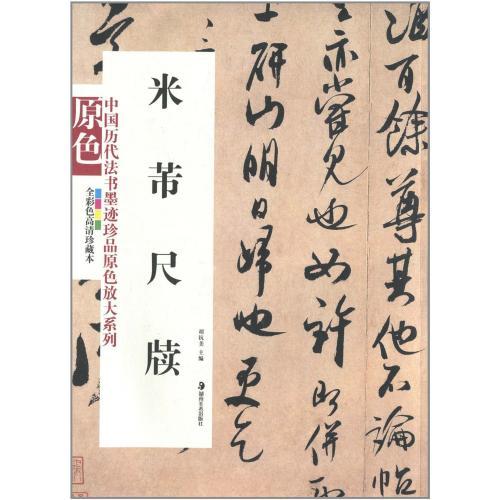 米芾尺牍
胡抗美 主编
湖南美术出版社
中国历代法书墨迹珍品原色放大系列
原色
全彩色高清珍藏本
百餘尊其他不論帖
亦罕見也如許即併
研山明日歸也更乞